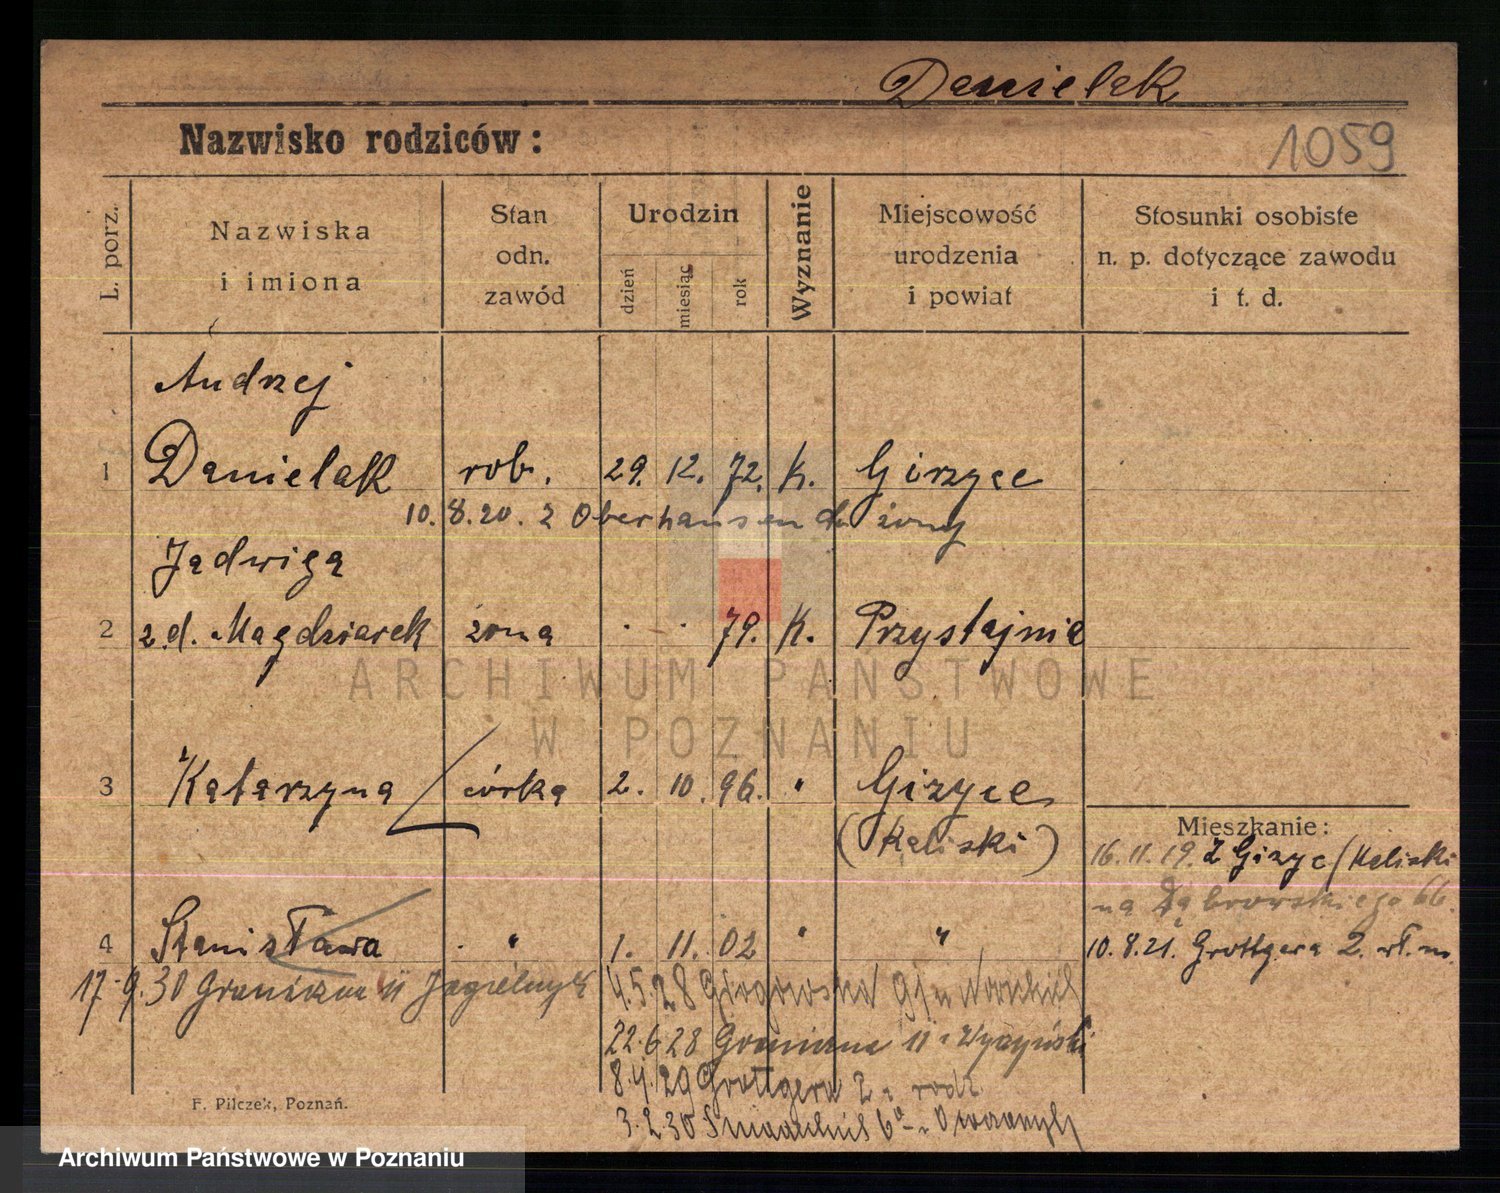 Danielak
Nazwisko rodziców:
1059
L. porz.
Nazwiska
i imiona
Stan
odn.
zawód
Urodzin
dzień
miesiąc
rok
Wyznanie
Miejscowość
urodzenia
i powiat
Stosunki osobiste
n. p. dotyczące zawodu
i t. d.
Andrzej
1 Danielak rob. 29. 12. 72. K. Girzyce
10. 8. 20. z Oberhausen do żony
Jadwiga
2 z.d. Magdziarek żona . . 79. K. Przystajnia
ARCHIWUM PAŃSTWOWE
W POZNANIU
3 Katarzyna córka 2. 10. 96. " Giżyce
(Kaliski)
Mieszkanie:
16. 11. 19. z Giżyc (Kaliski
na Dąbrowskiego 66.
4 Stanisława . " 1. 11. 02 " "
10. 8. 21. Grottgera 2. wł. m.
17. 9. 30 Graniczna 11
4. 5. 28 Głogowska
22. 6 28 Graniczna 11 Wyczyński
29 Grottgera 2 rodz
3. 2 30 Śniadeckich 6a
F. Pilczek, Poznań.
Archiwum Państwowe w Poznaniu